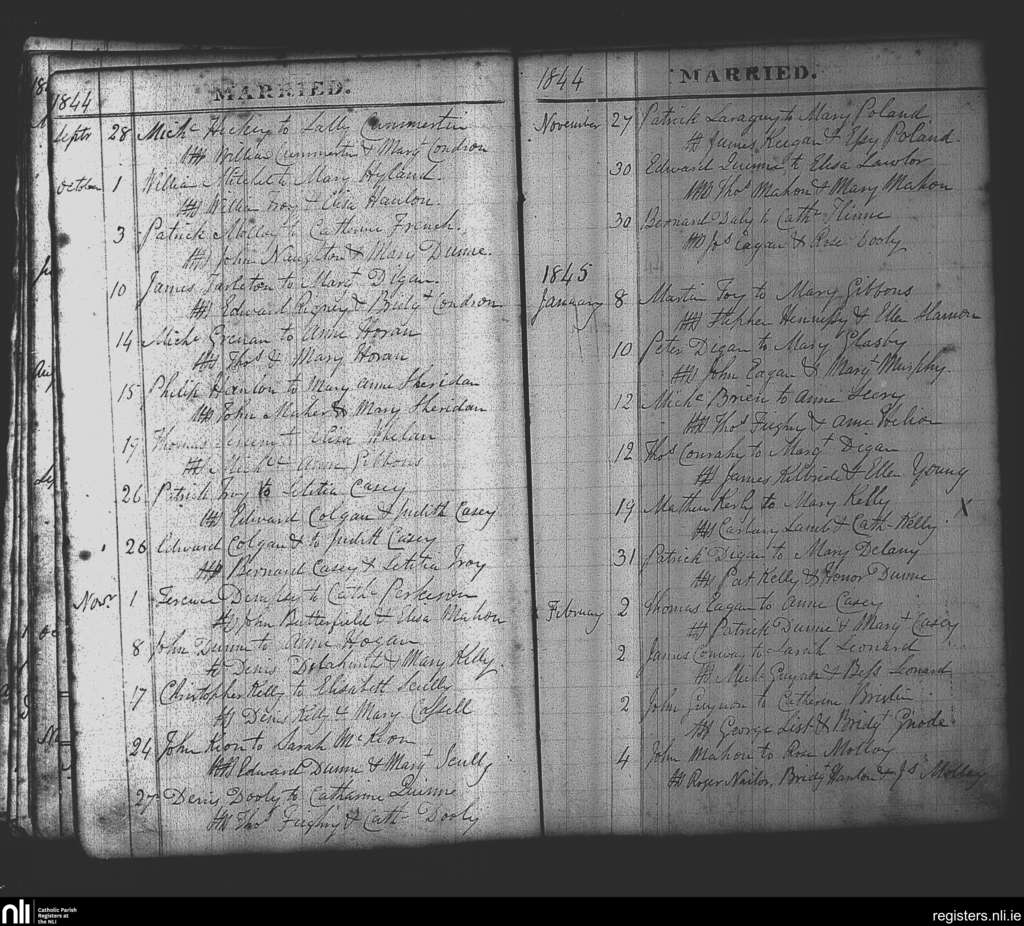 1844
MARRIED.
Septr 28 Michl Hickey to Sally Cummertin
William Cummertin & Margt Condron
October 1 William Mitchell to Mary Hyland.
Willm Troy & Elisa Hanlon.
3 Patrick Molloy to Catherine French.
John Naughton & Mary Dunne.
10 James Tarleton to Margt Digan.
Edward Rigney & Bridgt Condron
14 Michl Grenan to Anne Horan
Thos & Mary Horan
15 Philip Hanlon to Mary Anne Sheridan
John Maher & Mary Sheridan
19 Thomas to Elisa Whelan
Michl & Anne Gibbons
26 Patrick Troy to Letitia Casey
Edward Colgan & Judith Casey
26 Edward Colgan & to Judith Casey
Bernard Casey & Letitia Troy
Novr 1 Terence Dempsey to Cathe Perkeson
John Butterfield & Elisa Mahon
8 John Dunne to Anne Hogan
Denis Delahunt & Mary Kelly
17 Christopher Kelly to Elisabeth Scully
Denis Kelly & Mary Cassell
24 John Keon to Sarah McKeon
Edward Dunne & Margt Scully
27 Denis Dooly to Catharine Quinne
Thos Fieghry & Cath Dooly
1844
MARRIED.
November 27 Patrick Lavaguy to Mary Poland
James Keegan & Espy Poland.
30 Edward Quinne to Elisa Lawlor
Thos Mahon & Mary Mahon
30 Bernard Daly to Cathe Flinne
Js Eagan & Rose Dooly
1845
January 8 Martin Foy to Mary Gibbons
Stephen Hennessy & Ellen Hanion
10 Peter Digan to Mary Glasby
John Eagan & Margt Murphy.
12 Michl Brien to Anne Seery
Thos Fieghry & Anne
12 Thos Conrahy to Margt Digan
James Kilbride & Ellen Young
19 Mathew Kerly to Mary Kelly X
Carbury Lamb & Cath Kelly
31 Patrick Digan to Mary Delany
Pat Kelly & Honor Dunne
February 2 Thomas Eagan to Anne Casey
Patrick Dunne & Margt Casey
2 James Conway to Sarah Leonard
Michl Guynan & Bess Leonard
2 John Guynon to Catherine Breslin
George List & Bridgt
4 John Mahon to Rose Molloy
Roger Nailor, Bridgt Hanlon & Js Molloy
nli
Catholic Parish
Registers at
the NLI
registers.nli.ie